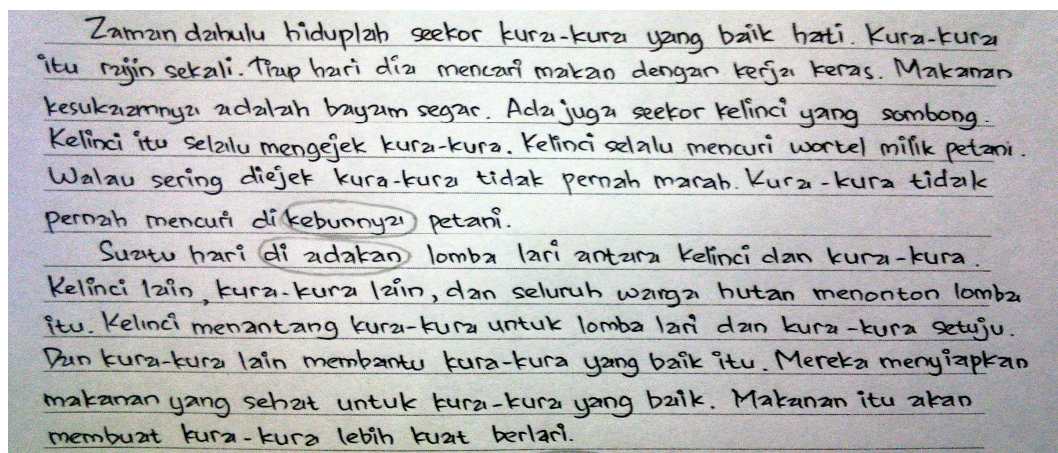 Zaman dahulu hiduplah seekor kura-kura yang baik hati. Kura-kura
itu rajin sekali. Tiap hari dia mencari makan dengan kerja keras. Makanan
kesukaannya adalah bayam segar. Ada juga seekor kelinci yang sombong.
Kelinci itu selalu mengejek kura-kura. Kelinci selalu mencuri wortel milik petani.
Walau sering diejek kura-kura tidak pernah marah. Kura-kura tidak
pernah mencuri di kebunnya petani.
Suatu hari di adakan lomba lari antara kelinci dan kura-kura.
Kelinci lain, kura-kura lain, dan seluruh warga hutan menonton lomba
itu. Kelinci menantang kura-kura untuk lomba lari dan kura-kura setuju.
Dan kura-kura lain membantu kura-kura yang baik itu. Mereka menyiapkan
makanan yang sehat untuk kura-kura yang baik. Makanan itu akan
membuat kura-kura lebih kuat berlari.